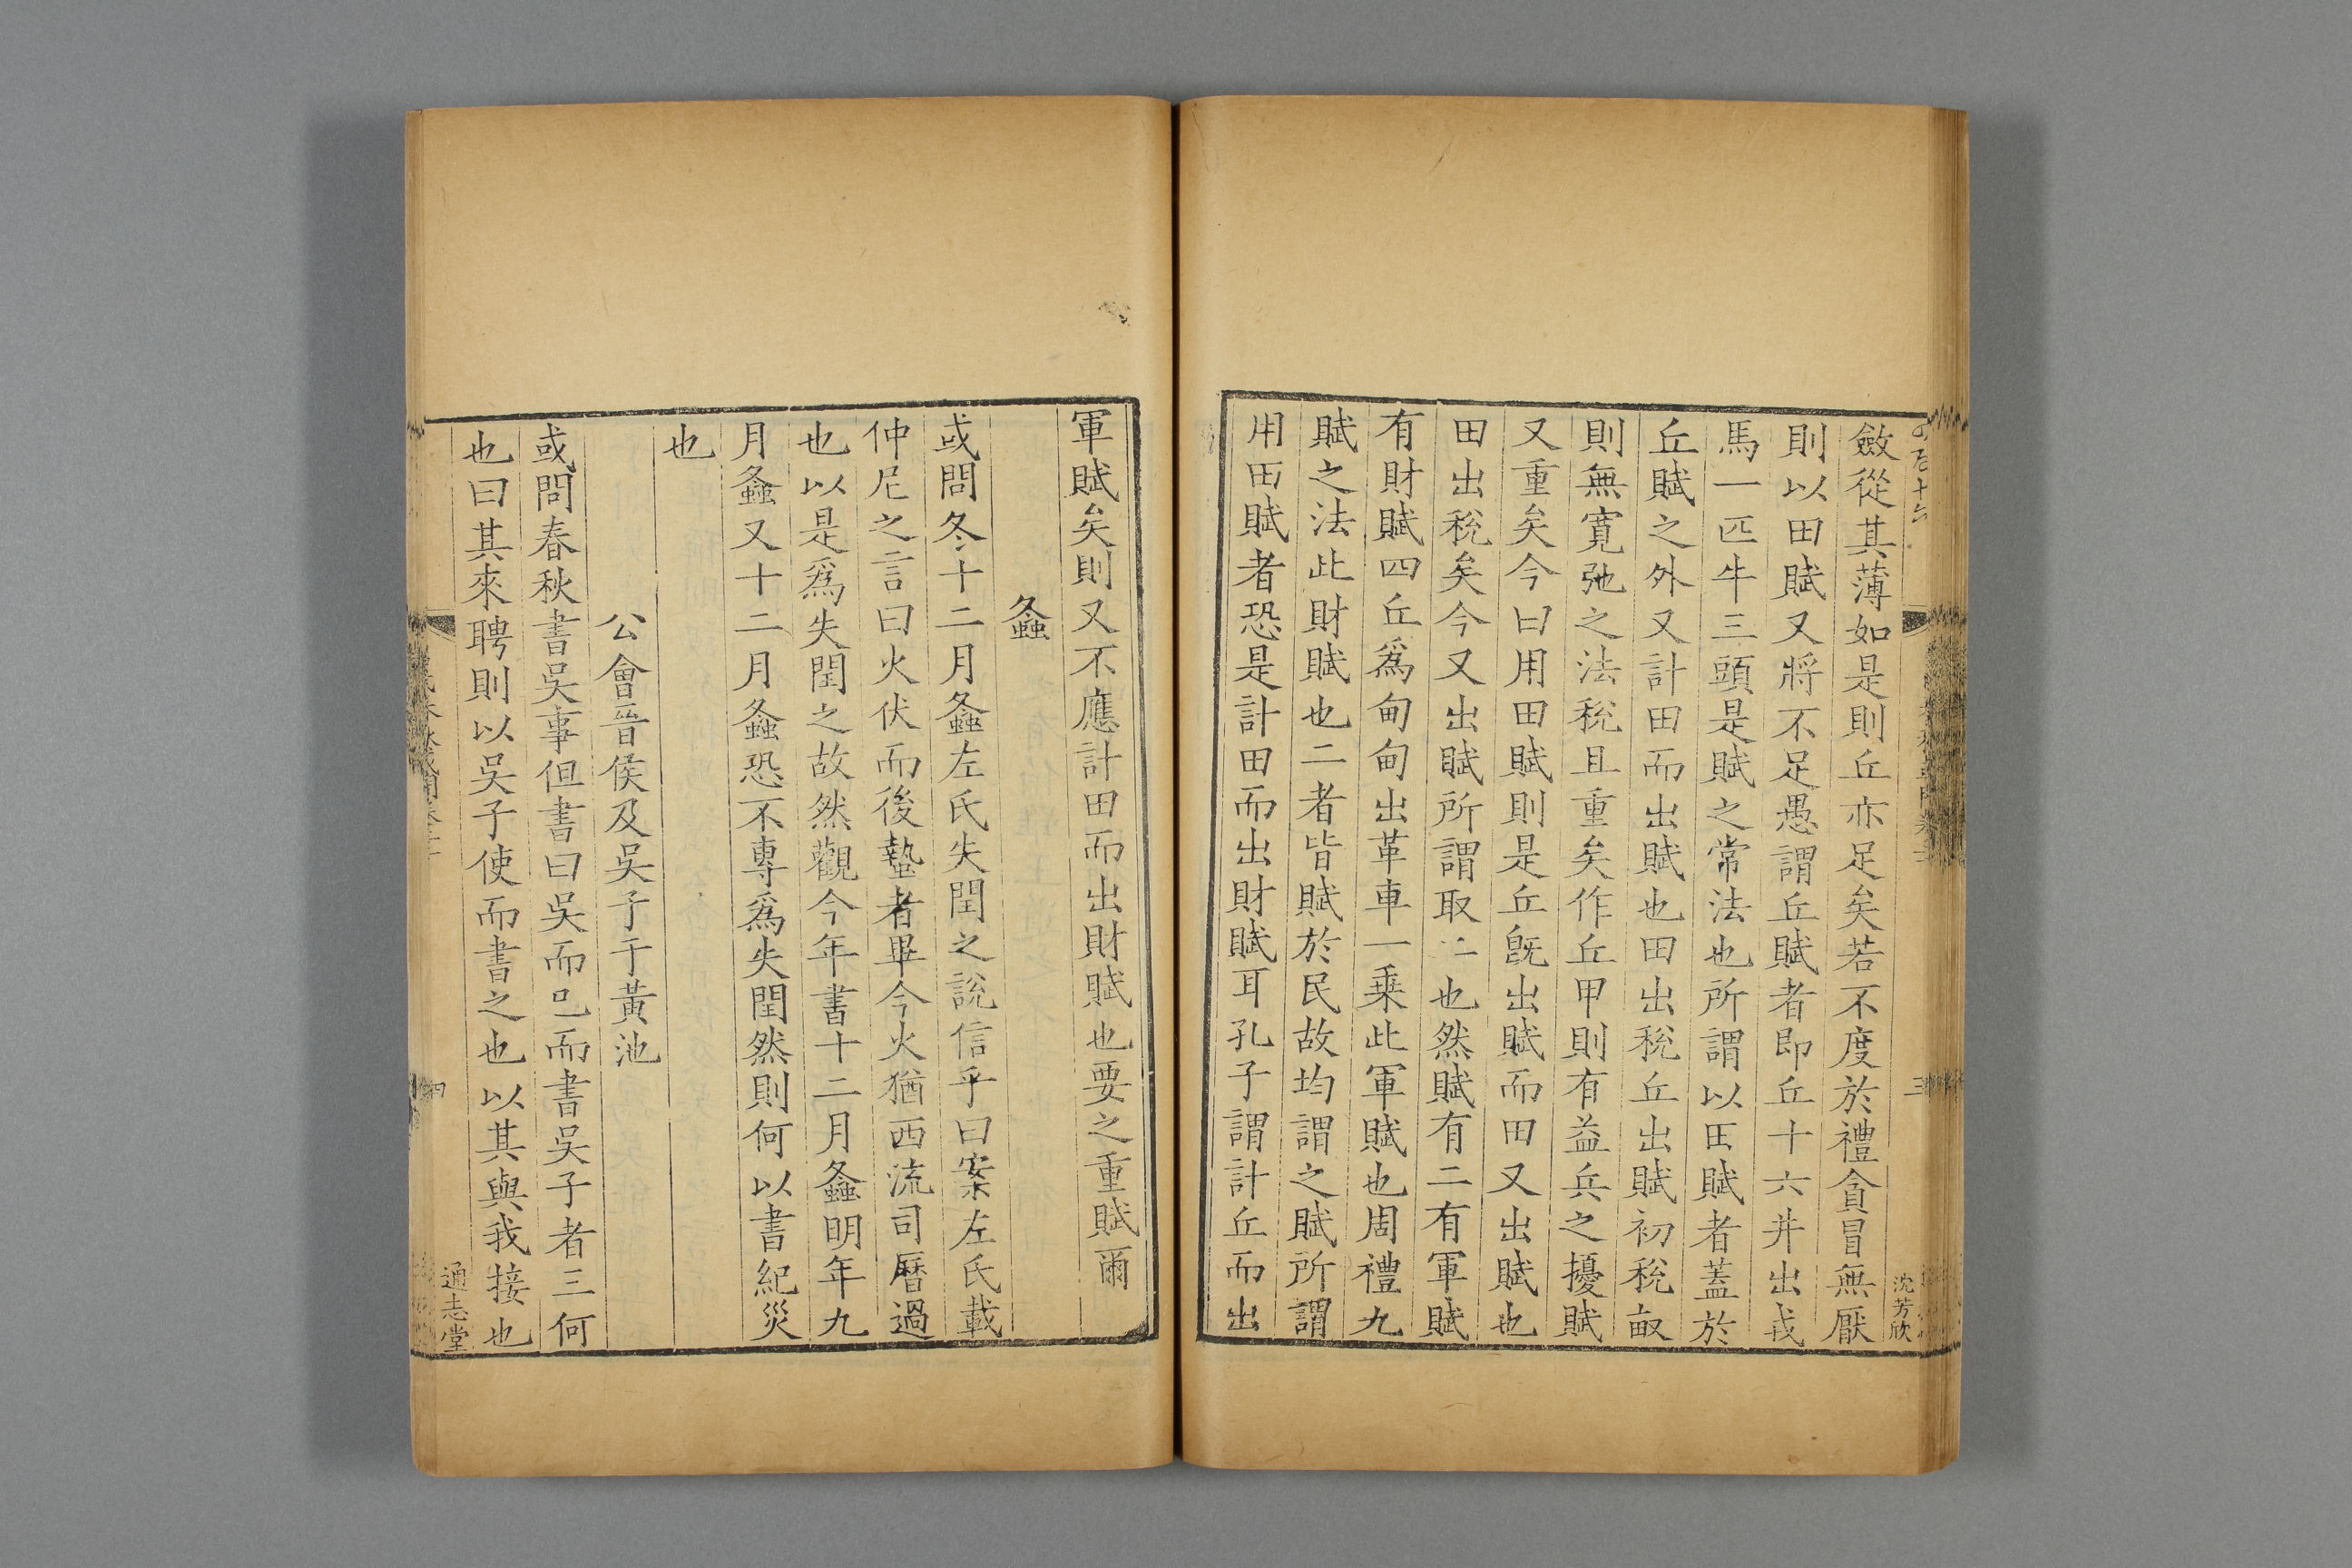 斂從其薄如是則丘亦足矣若不度於禮貪冒無厭
則以田賦又將不足愚謂丘賦者即丘十六井出戎
馬一匹牛三頭是賦之常法也所謂以田賦者蓋於
丘賦之外又計田而出賦也田出稅丘出賦初稅畝
則無寛弛之法稅且重矣作丘甲則有益兵之擾賦
又重矣今曰用田賦則是丘旣出賦而田又出賦也
田出稅矣今又出賦所謂取二也然賦有二有軍賦
有財賦四丘爲甸甸出革車一乗此軍賦也周禮九
賦之法此財賦也二者皆賦於民故均謂之賦所謂
用田賦者恐是計田而出財賦耳孔子謂計丘而出
沈芳欣
三
軍賦矣則又不應計田而出財賦也要之重賦爾
螽
或問冬十二月螽左氏失閏之說信乎曰案左氏載
仲尼之言曰火伏而後蟄者畢今火猶西流司曆過
也以是爲失閏之故然觀今年書十二月螽明年九
月螽又十二月螽恐不專爲失閏然則何以書紀災
也
公會晉侯及吳子于黃池
或問春秋書吳事但書曰吳而已而書吳子者三何
也曰其來聘則以吳子使而書之也以其與我接也
四
通志堂